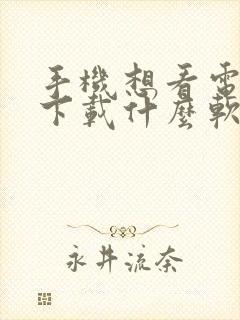 手機想看電
下載什麼軟
永井流奈